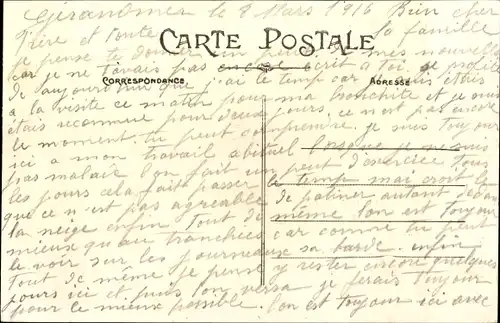 Gérardmer le 8 Mars 1916 Bien cher
frère et toute la famille
CARTE POSTALE
je pense te donner un peu de mes nouvelles
car je ne t'avais pas encore écrit à toi. je profite
CORRESPONDANCE
ADRESSE
de aujourd'hui que j'ai le temp car je suis étais
a la visite ce matin pour ma bronchite et je suis
étais reconnue pour deux jours. ce n'est pas encore
le moment. tu peut comprendre. je suis toujour
ici a mon travail abituel lorsque je ne suis
pas malair lon fait un peut d'exercice tous
les jours cela fait passer le temp mai croit le
que ce n'est pas agreable de patiner autant dans
la neige enfin Tout de même lon est toujour
mieux qu'au tranchées car comme tu peut
le voir sur les journeaux sa barde. enfin
Tout de même je pense y rester encore quelques
jours ici et puis lon versa je ferais toujour
pour le mieux possible. lon est toujour ici avec